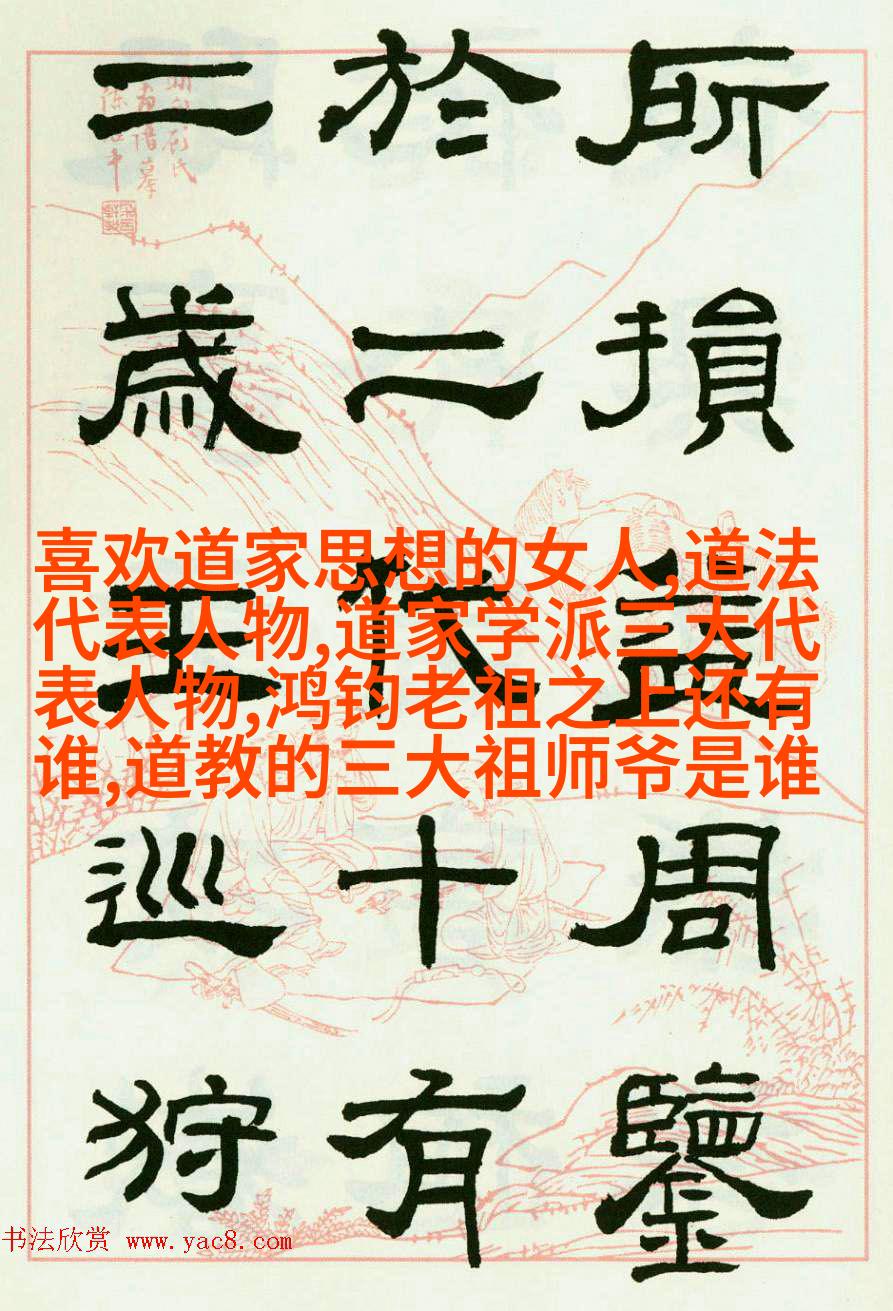 所損益周鑒
於二代十有
二歲王巡狩
喜欢道家思想的女人,道法
代表人物,道家学派三大代
表人物,鸿钧老祖之上还有
谁,道教的三大祖师爷是谁
书法欣赏 www.yac8.com